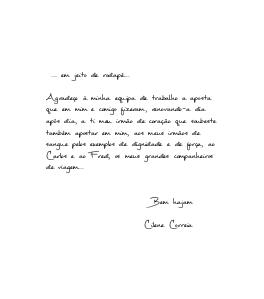 ... em jeito de rodapé...
Agradeço à minha equipa de trabalho a aposta
que em mim e comigo fizeram, renovando-a dia
após dia, a ti meu irmão de coração que soubeste
também apostar em mim, aos meus irmãos de
sangue pelos exemplos de dignidade e de força, ao
Carlos e ao Fred, os meus grandes companheiros
de viagem...
Bem hajam
Cilene Correia